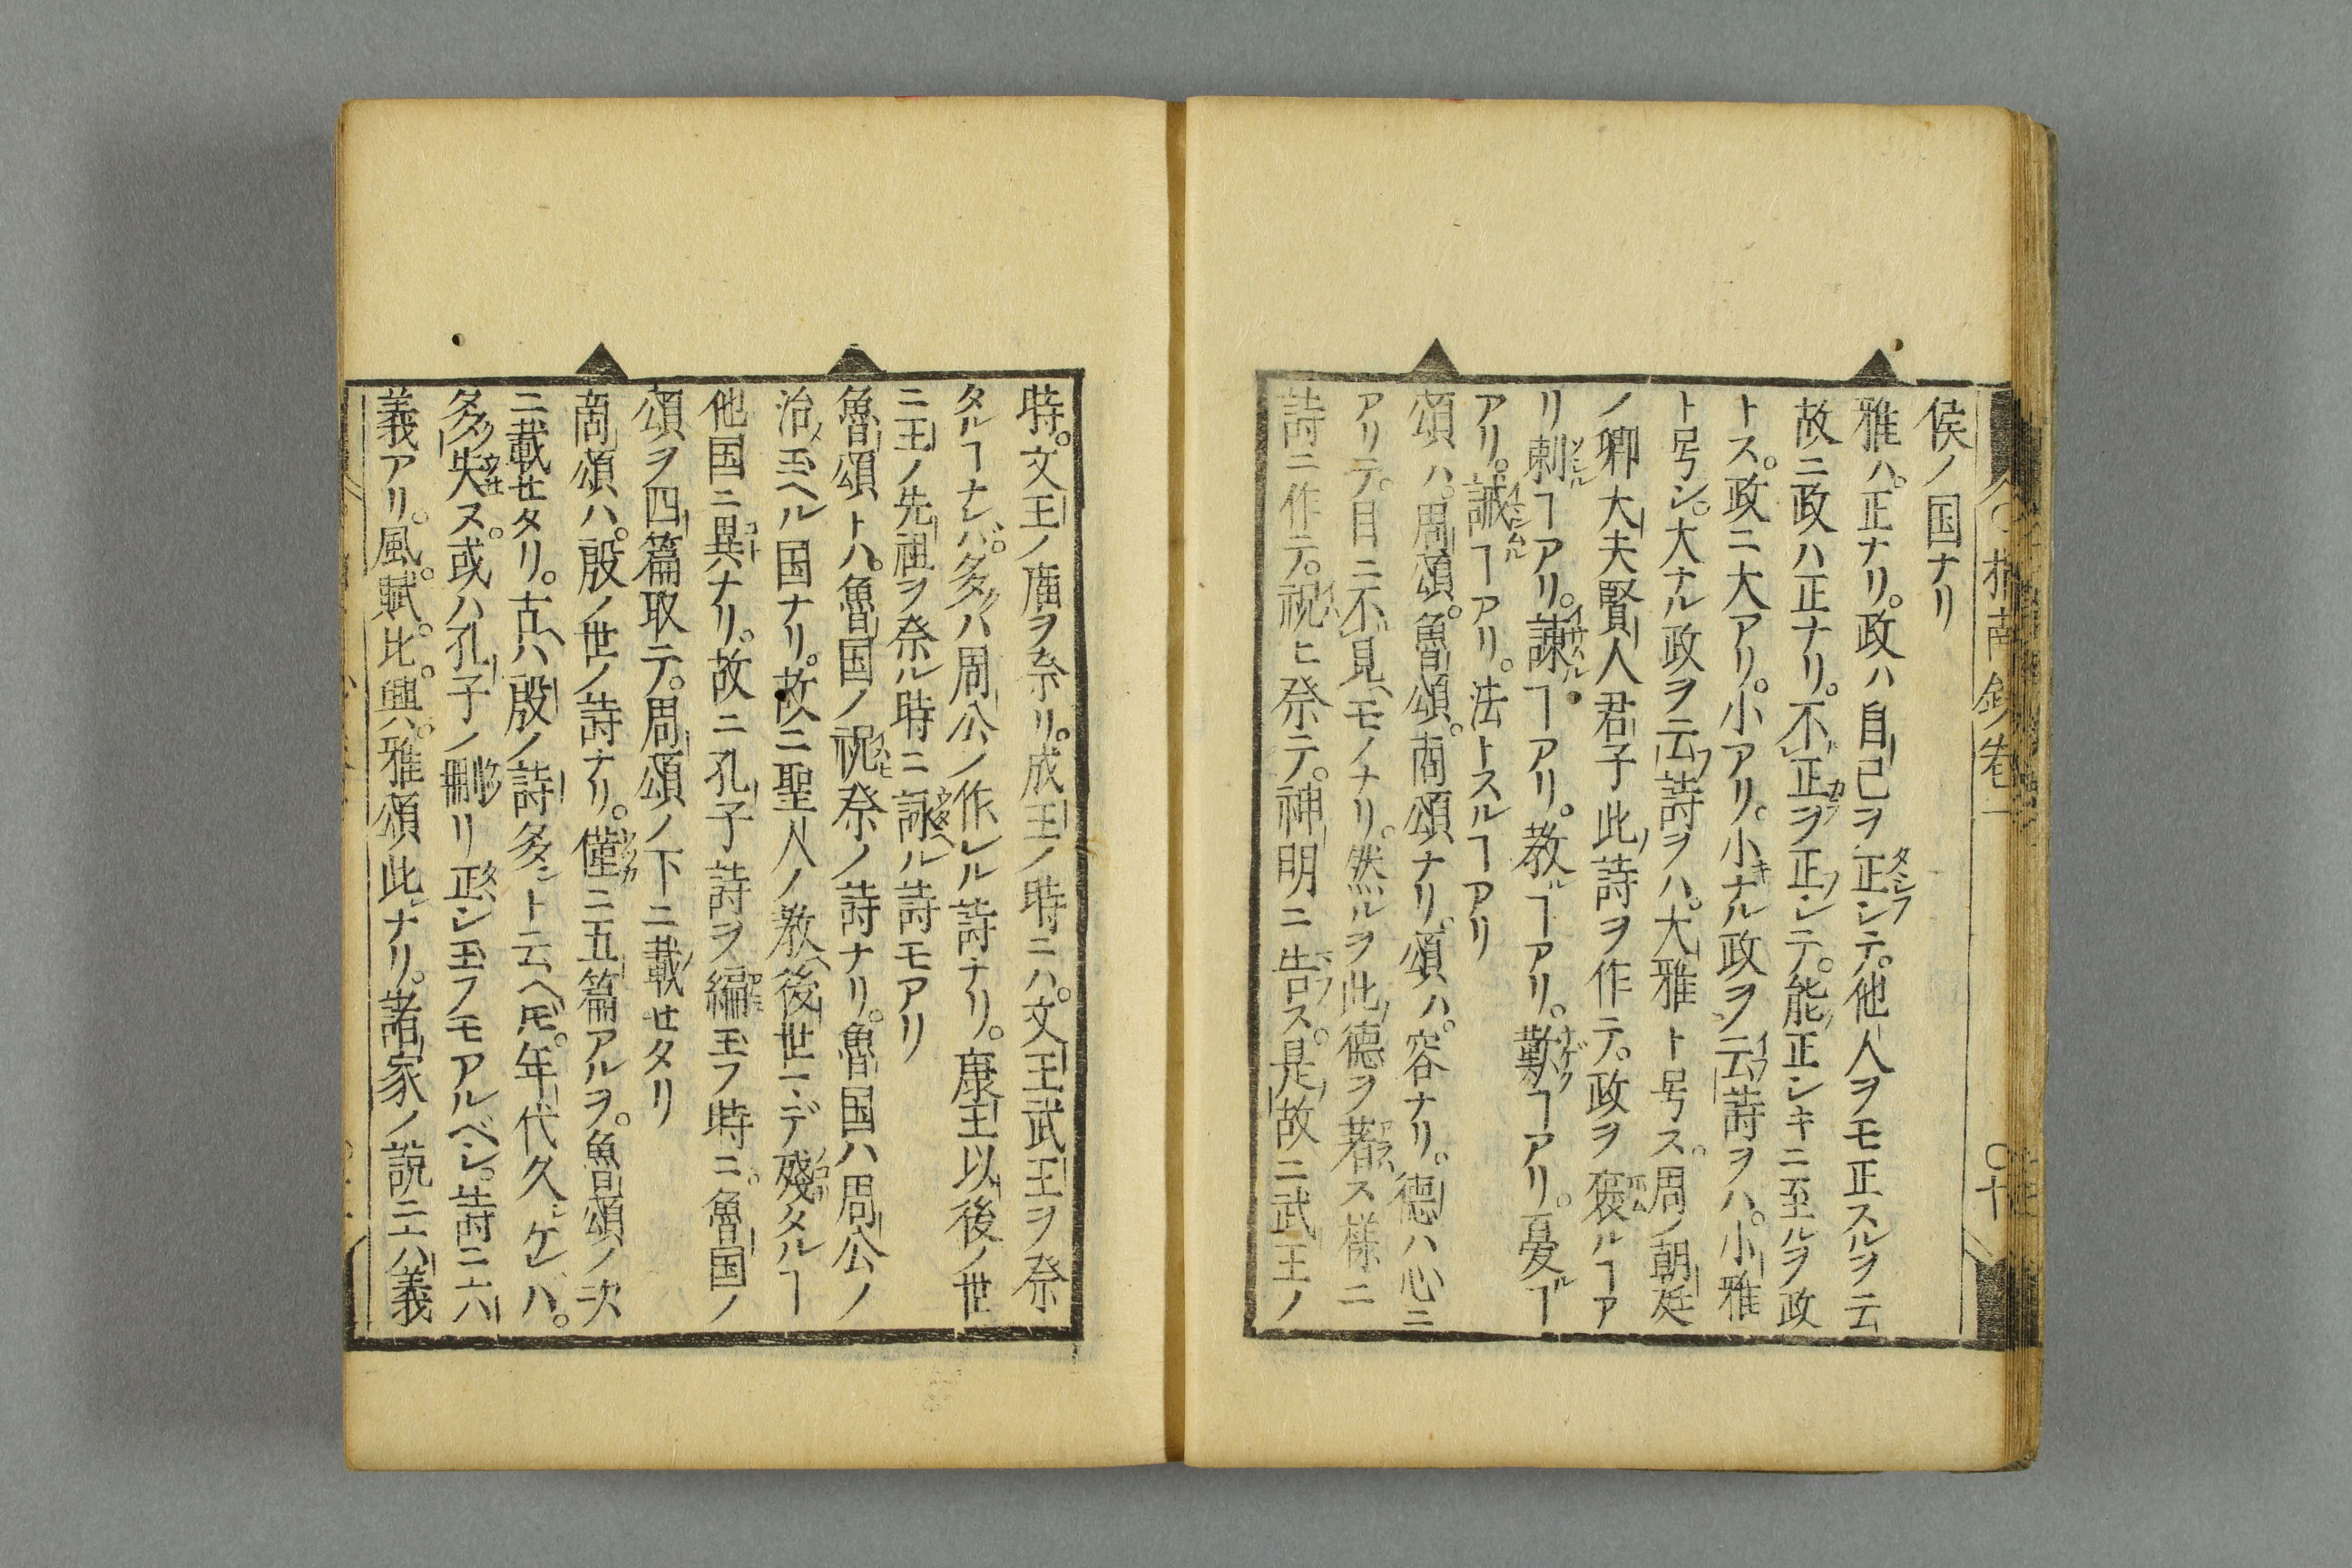 侯ノ国ナリ
雅ハ。正ナリ。政ハ自己ヲ正シテ。他人ヲモ正スルヲ云
故ニ政ハ正ナリ。不正ヲ正シテ。能正シキニ至ルヲ政
トス。政ニ大アリ。小アリ。小ナル政ヲ云詩ヲハ。小雅
ト号シ。大ナル政ヲ云詩ヲハ。大雅ト号ス。周ノ朝廷
ノ卿大夫賢人君子此詩ヲ作テ。政ヲ褒ルヿア
リ刺ヿアリ。諫ヿアリ。教ヿアリ。歎ヿアリ。憂ヿ
アリ。誡ヿアリ。法トスルヿアリ
頌ハ。周頌。魯頌。商頌ナリ。頌ハ。容ナリ。德ハ心ニ
アリテ。目ニ不見モノナリ。然ルヲ此德ヲ著ス様ニ
詩ニ作テ。祝ヒ祭テ。神明ニ告ス。是故ニ武王ノ
時。文王ノ庿ヲ祭リ。成王ノ時ニハ。文王武王ヲ祭
タルヿナレバ。多ハ周公ノ作レル詩ナリ。康王以後ノ世
ニ王ノ先祖ヲ祭ル時ニ詠ル詩モアリ
魯頌トハ。魯国ノ祝祭ノ詩ナリ。魯国ハ周公ノ
治玉ヘル国ナリ。故ニ聖人ノ教後世マデ殘タルヿ
他国ニ異ナリ。故ニ孔子詩ヲ編玉フ時ニ。魯国ノ
頌ヲ四篇取テ。周頌ノ下ニ載セタリ
商頌ハ。殷ノ世ノ詩ナリ。僅ニ五篇アルヲ。魯頌ノ次
ニ載セタリ。古ハ殷ノ詩多シト云ヘ𪜈。年代久シケレバ。
多失ヌ。或ハ孔子ノ刪リ正シ玉フモアルベシ。詩ニ六
義アリ。風。賦。比。興。雅頌此ナリ。諸家ノ説ニ六義
指南鈔卷一
〇十